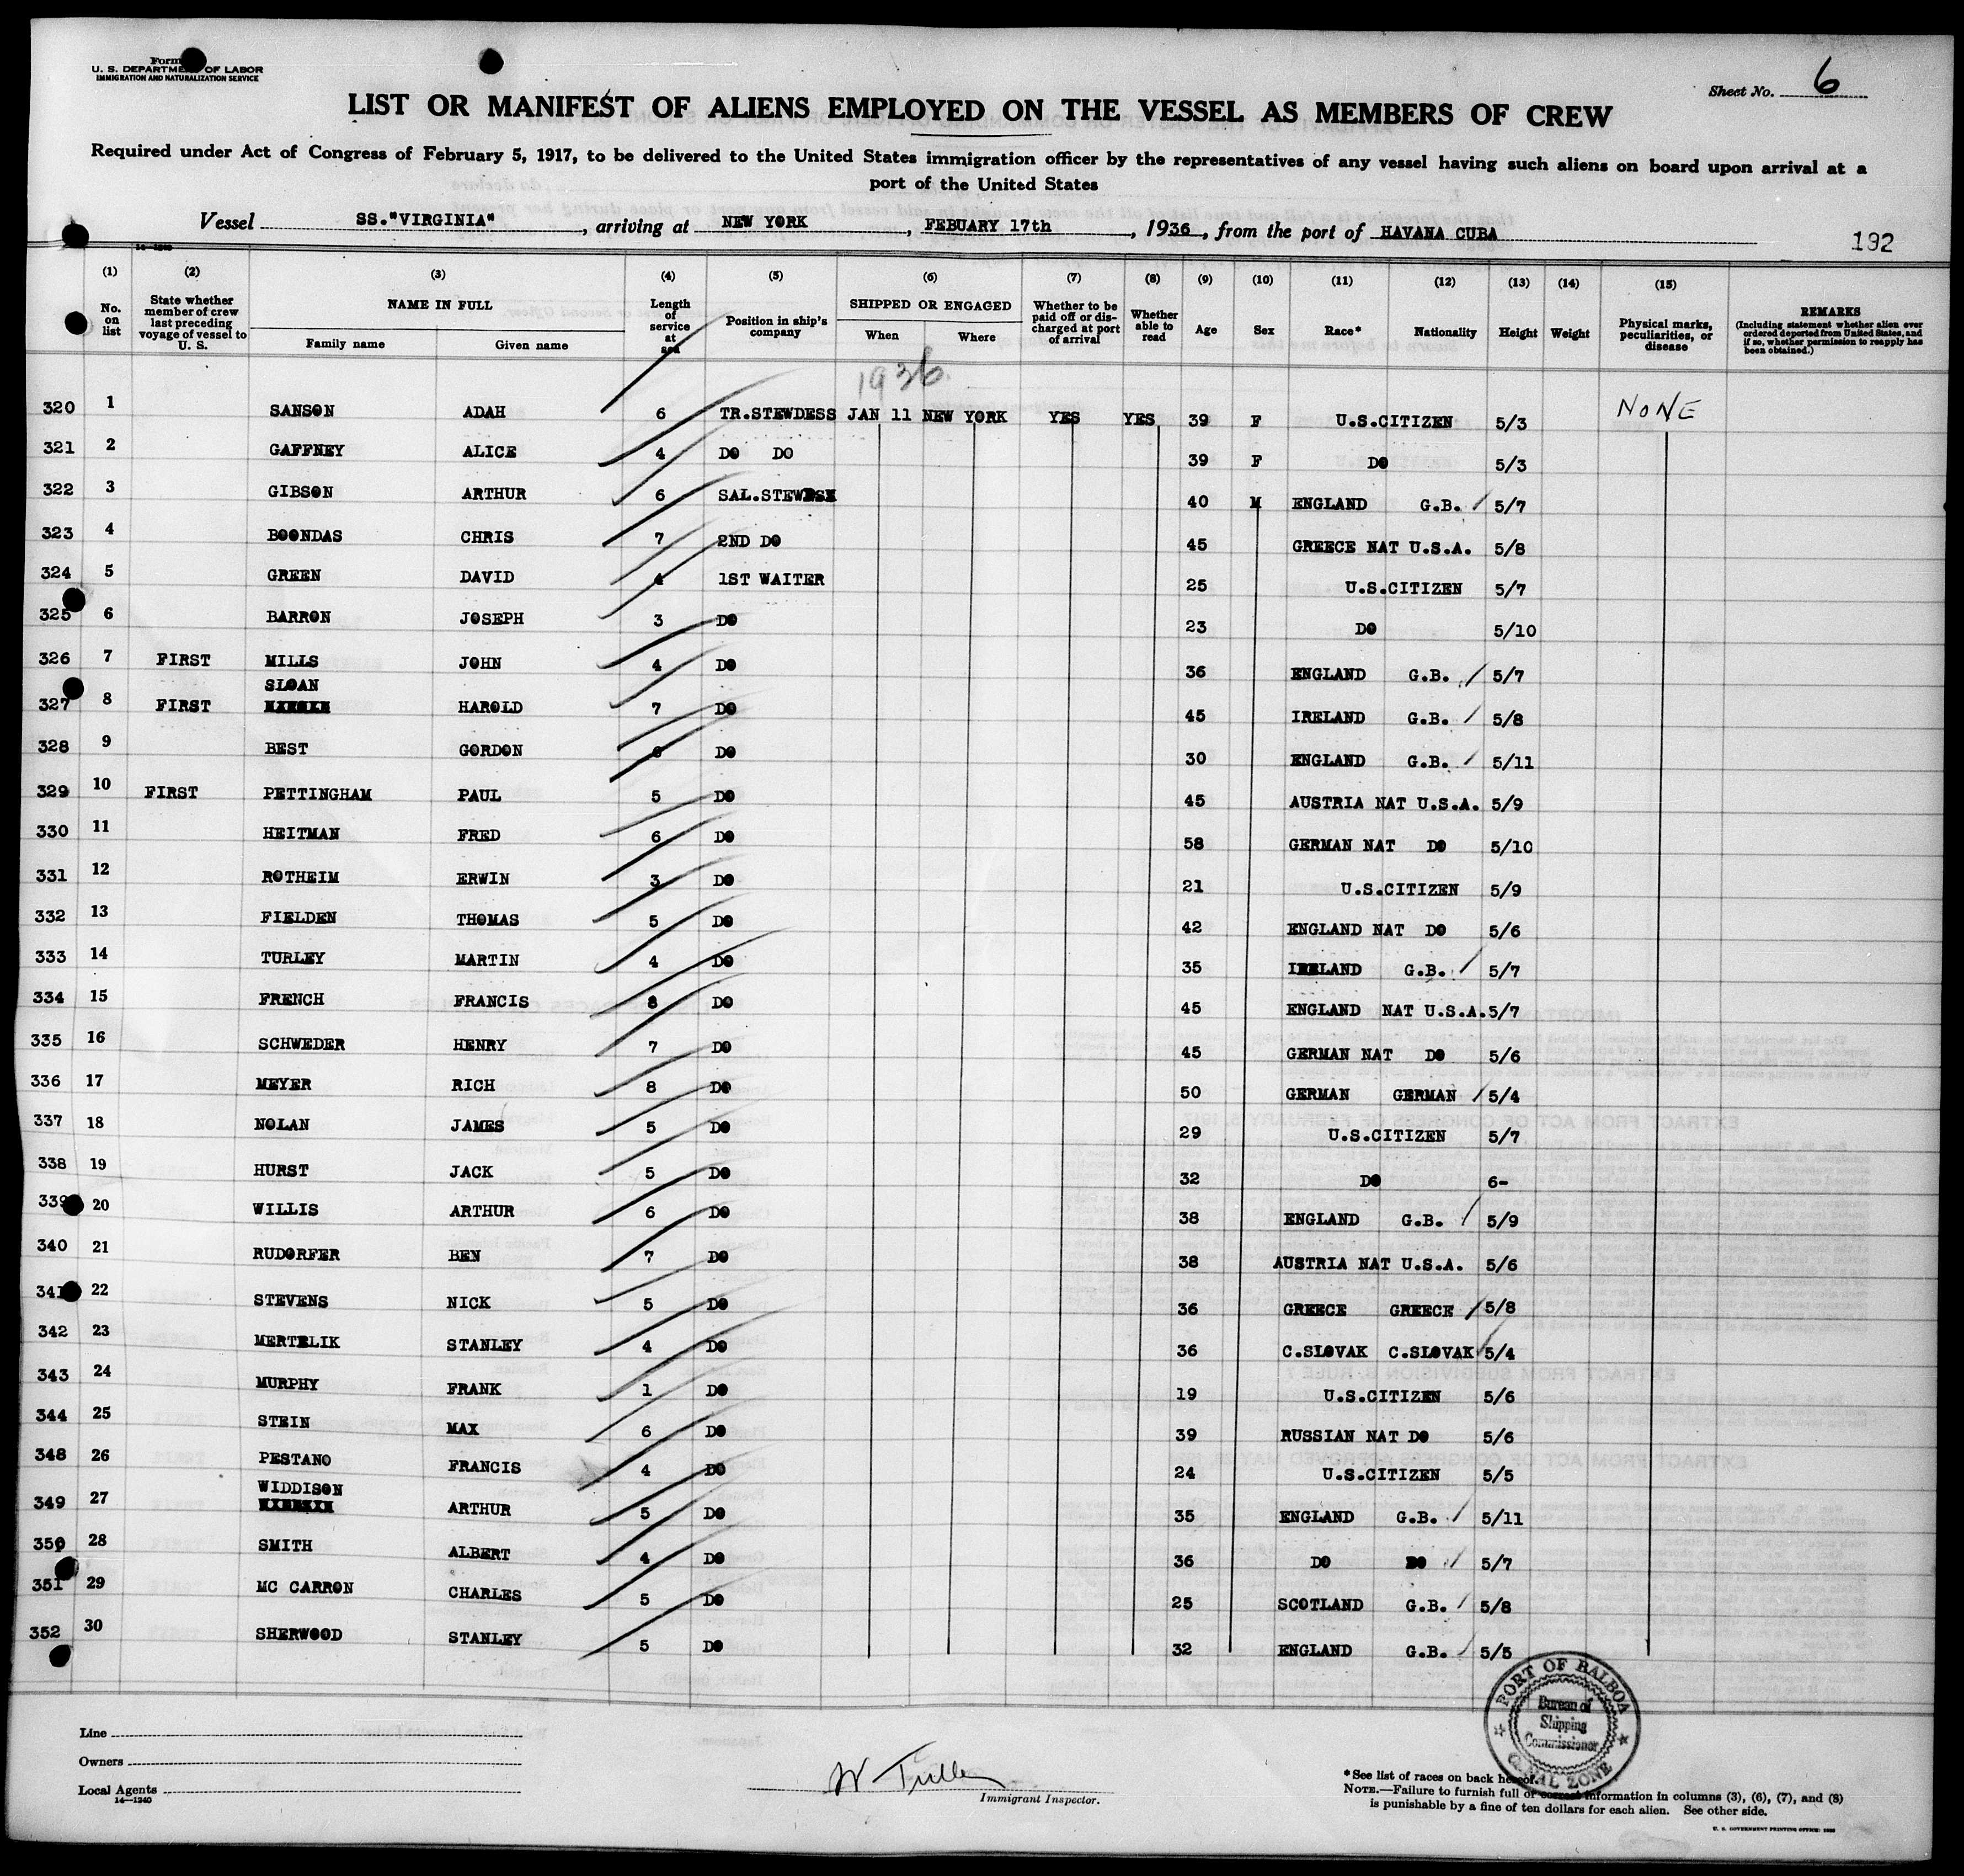 Form
U. S. DEPARTMENT OF LABOR
IMMIGRATION AND NATURALIZATION SERVICE
Sheet No. 6
LIST OR MANIFEST OF ALIENS EMPLOYED ON THE VESSEL AS MEMBERS OF CREW
Required under Act of Congress of February 5, 1917, to be delivered to the United States immigration officer by the representatives of any vessel having such aliens on board upon arrival at a
port of the United States
Vessel SS."VIRGINIA", arriving at NEW YORK, FEBUARY 17th, 1936, from the port of HAVANA CUBA
192
14—1240
(1) (2) (3) (4) (5) (6) (7) (8) (9) (10) (11) (12) (13) (14) (15)
No. on list
State whether member of crew last preceding voyage of vessel to U. S.
NAME IN FULL
Family name Given name
Length of service at sea
Position in ship's company
SHIPPED OR ENGAGED
When Where
Whether to be paid off or discharged at port of arrival
Whether able to read
Age Sex Race* Nationality Height Weight
Physical marks, peculiarities, or disease
REMARKS
(Including statement whether alien ever ordered deported from United States, and if so, whether permission to reapply has been obtained.)
1936
320 1 SANSON ADAH 6 TR.STEWDESS JAN 11 NEW YORK YES YES 39 F U.S.CITIZEN 5/3 NONE
321 2 GAFFNEY ALICE 4 DO DO 39 F DO 5/3
322 3 GIBSON ARTHUR 6 SAL.STEW 40 M ENGLAND G.B. 5/7
323 4 BOONDAS CHRIS 7 2ND DO 45 GREECE NAT U.S.A. 5/8
324 5 GREEN DAVID 4 1ST WAITER 25 U.S.CITIZEN 5/7
325 6 BARRON JOSEPH 3 DO 23 DO 5/10
326 7 FIRST MILLS JOHN 4 DO 36 ENGLAND G.B. 5/7
327 8 FIRST SLOAN HAROLD 7 DO 45 IRELAND G.B. 5/8
328 9 BEST GORDON 6 DO 30 ENGLAND G.B. 5/11
329 10 FIRST PETTINGHAM PAUL 5 DO 45 AUSTRIA NAT U.S.A. 5/9
330 11 HEITMAN FRED 6 DO 58 GERMAN NAT DO 5/10
331 12 ROTHEIM ERWIN 3 DO 21 U.S.CITIZEN 5/9
332 13 FIELDEN THOMAS 5 DO 42 ENGLAND NAT DO 5/6
333 14 TURLEY MARTIN 4 DO 35 IRELAND G.B. 5/7
334 15 FRENCH FRANCIS 8 DO 45 ENGLAND NAT U.S.A. 5/7
335 16 SCHWEDER HENRY 7 DO 45 GERMAN NAT DO 5/6
336 17 MEYER RICH 8 DO 50 GERMAN GERMAN 5/4
337 18 NOLAN JAMES 5 DO 29 U.S.CITIZEN 5/7
338 19 HURST JACK 5 DO 32 DO 6-
339 20 WILLIS ARTHUR 6 DO 38 ENGLAND G.B. 5/9
340 21 RUDORFER BEN 7 DO 38 AUSTRIA NAT U.S.A. 5/6
341 22 STEVENS NICK 5 DO 36 GREECE GREECE 5/8
342 23 MERTELIK STANLEY 4 DO 36 C.SLOVAK C.SLOVAK 5/4
343 24 MURPHY FRANK 1 DO 19 U.S.CITIZEN 5/6
344 25 STEIN MAX 6 DO 39 RUSSIAN NAT DO 5/6
348 26 PESTANO FRANCIS 4 DO 24 U.S.CITIZEN 5/5
349 27 WIDDISON ARTHUR 5 DO 35 ENGLAND G.B. 5/11
350 28 SMITH ALBERT 4 DO 36 DO DO 5/7
351 29 MC CARRON CHARLES 5 DO 25 SCOTLAND G.B. 5/8
352 30 SHERWOOD STANLEY 5 DO 32 ENGLAND G.B. 5/5
PORT OF BALBOA
Bureau of
Shipping
Commissioner
CANAL ZONE
Line
Owners
Local Agents
14—1240
Immigrant Inspector.
*See list of races on back hereof.
NOTE.—Failure to furnish full or correct information in columns (3), (6), (7), and (8)
is punishable by a fine of ten dollars for each alien. See other side.
U. S. GOVERNMENT PRINTING OFFICE: